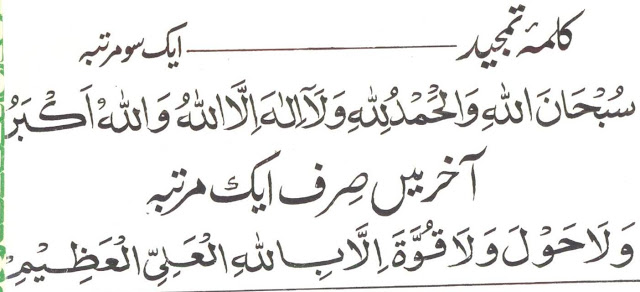 کلمۂ تمجید ــــــــــ ایک سو مرتبہ
سُبْحَانَ اللهِ وَالْحَمْدُ لِلّٰهِ وَلَآ اِلٰهَ اِلَّا اللهُ وَاللهُ اَكْبَرُ
آخر میں صِرف ایک مرتبہ
وَلَا حَوْلَ وَلَا قُوَّةَ اِلَّا بِاللهِ الْعَلِىِّ الْعَظِيْمِ